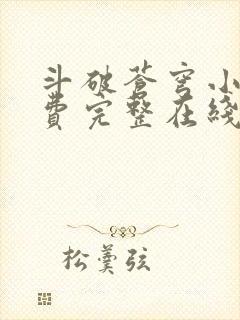 斗破苍穹小
费完整在线
松羹弦